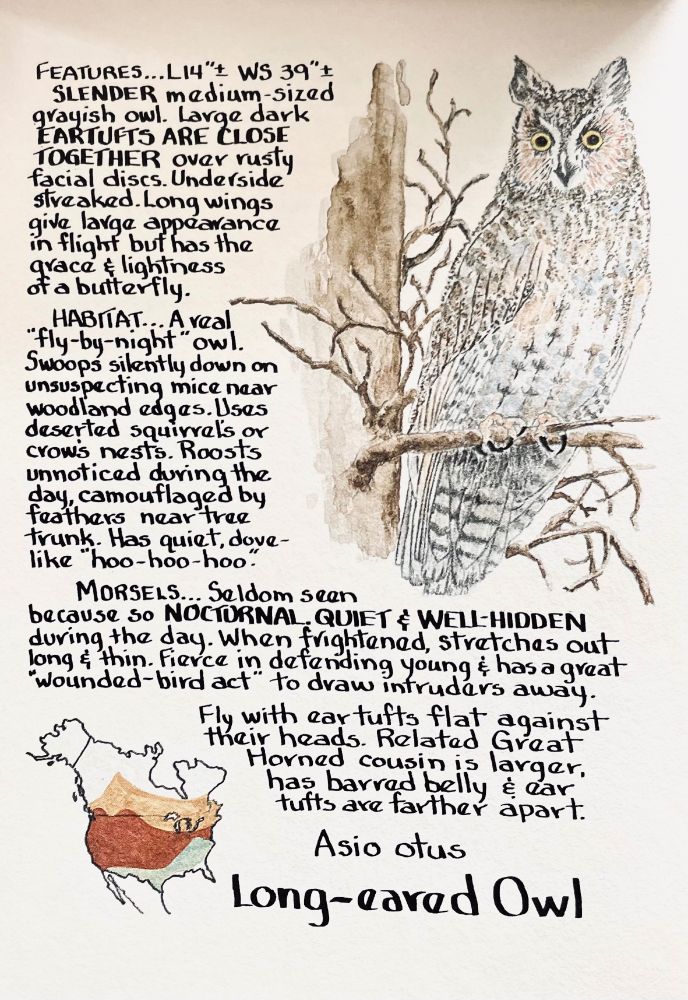 FEATURES...L14"± WS 39"±
SLENDER medium-sized
grayish owl. Large dark
EARTUFTS ARE CLOSE
TOGETHER over rusty
facial discs. Underside
streaked. Long wings
give large appearance
in flight but has the
grace & lightness
of a butterfly.
HABITAT... A real
"fly-by-night" owl.
Swoops silently down on
unsuspecting mice near
woodland edges. Uses
deserted squirrel's or
crow's nests. Roosts
unnoticed during the
day, camouflaged by
feathers near tree
trunk. Has quiet, dove-
like "hoo-hoo-hoo".
MORSELS... Seldom seen
because so NOCTURNAL, QUIET & WELL-HIDDEN
during the day. When frightened, stretches out
long & thin. Fierce in defending young & has a great
"wounded-bird act" to draw intruders away.
Fly with ear tufts flat against
their heads. Related Great
Horned cousin is larger,
has barred belly & ear
tufts are farther apart.
Asio otus
Long-eared Owl